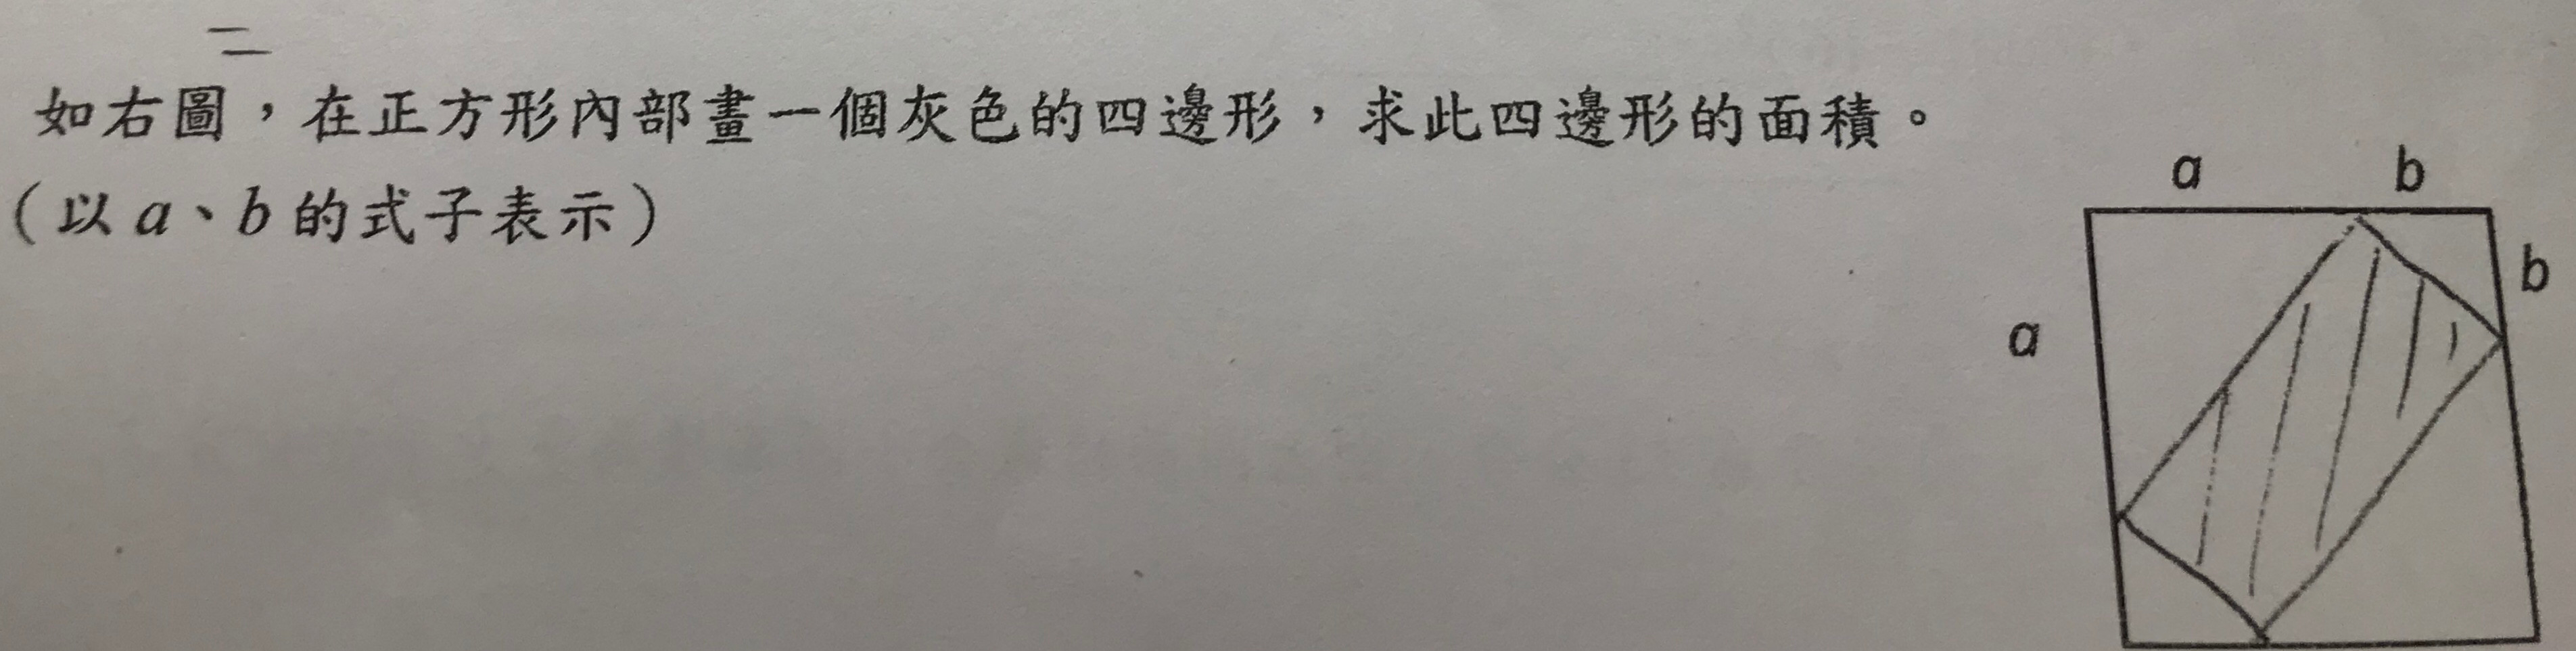 二
如右圖，在正方形內部畫一個灰色的四邊形，求此四邊形的面積。
（以a、b的式子表示）
a b
b
a